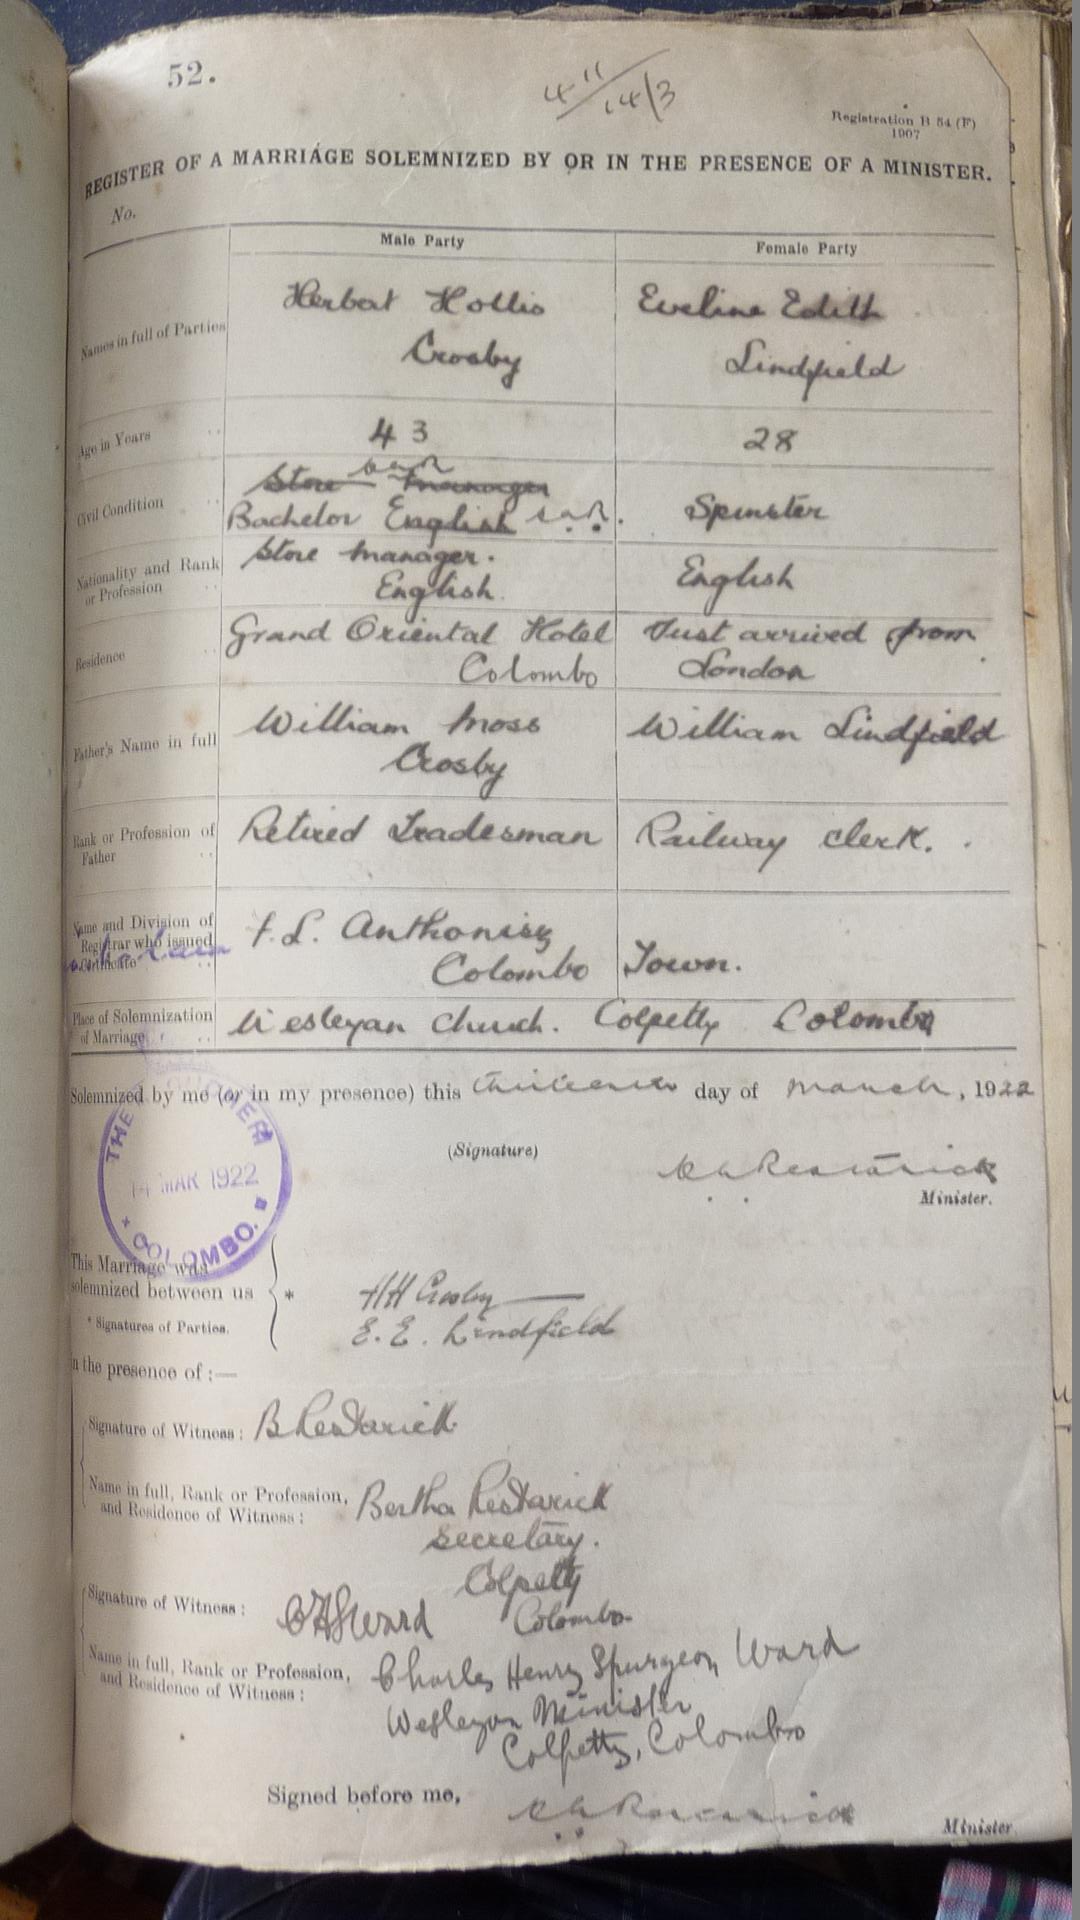 52.
4 11/14/3
Registration B 54 (F)
1907
REGISTER OF A MARRIAGE SOLEMNIZED BY OR IN THE PRESENCE OF A MINISTER.
No.
Male Party Female Party
Names in full of Parties Herbert Hollis Crosby Eveline Edith Lindfield
Age in Years 43 28
Civil Condition Store manager Bachelor English Spinster
Nationality and Rank or Profession Store manager. English. English
Residence Grand Oriental Hotel Colombo Just arrived from London
Father's Name in full William Moss Crosby William Lindfield
Rank or Profession of Father Retired Tradesman Railway clerk.
Name and Division of Registrar who issued Certificate F. L. Anthonisz Colombo Town.
Place of Solemnization of Marriage Wesleyan Church. Colpetty Colombo
Solemnized by me (or in my presence) this thirteenth day of March, 1922
(Signature)
Restarick
Minister.
THE
14 MAR 1922
COLOMBO.
This Marriage was
solemnized between us * HH Crosby
* Signatures of Parties. E. E. Lindfield
In the presence of :—
Signature of Witness : B Restarick
Name in full, Rank or Profession, and Residence of Witness : Bertha Restarick
Secretary.
Colpetty
Colombo
Signature of Witness : CHSWard
Name in full, Rank or Profession, and Residence of Witness : Charles Henry Spurgeon Ward
Wesleyan Minister
Colpetty, Colombo
Signed before me, Restarick
Minister.